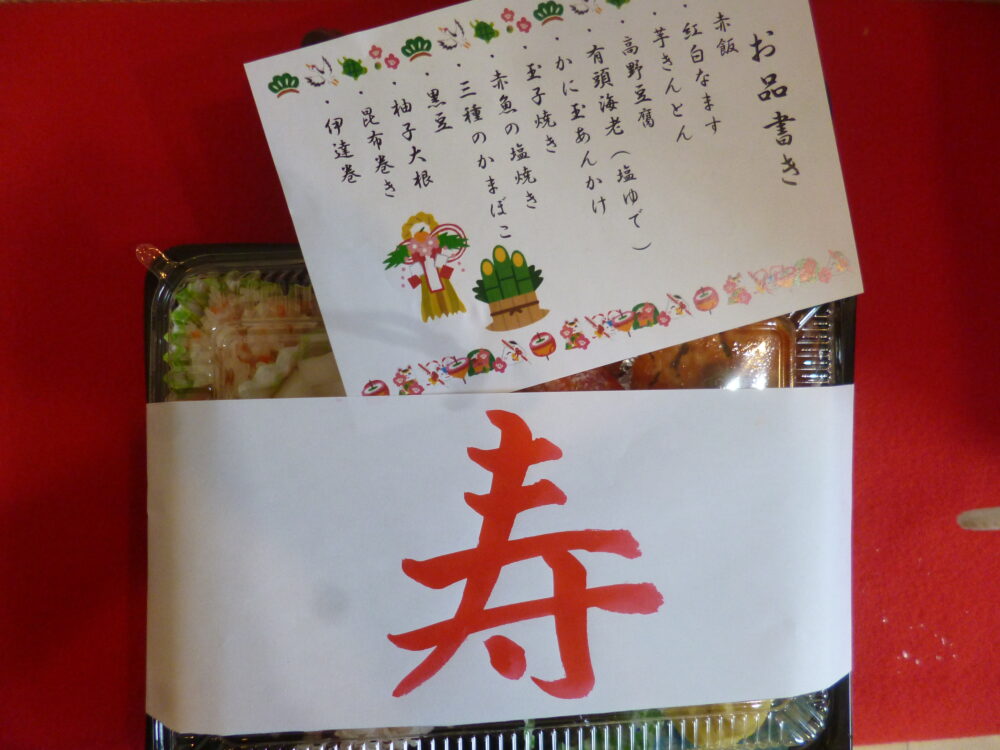 お品書き
赤飯
・紅白なます
・芋きんとん
・高野豆腐
・有頭海老(塩ゆで)
・かに玉あんかけ
・玉子焼き
・赤魚の塩焼き
・三種のかまぼこ
・黒豆
・柚子大根
・昆布巻き
・伊達巻
寿